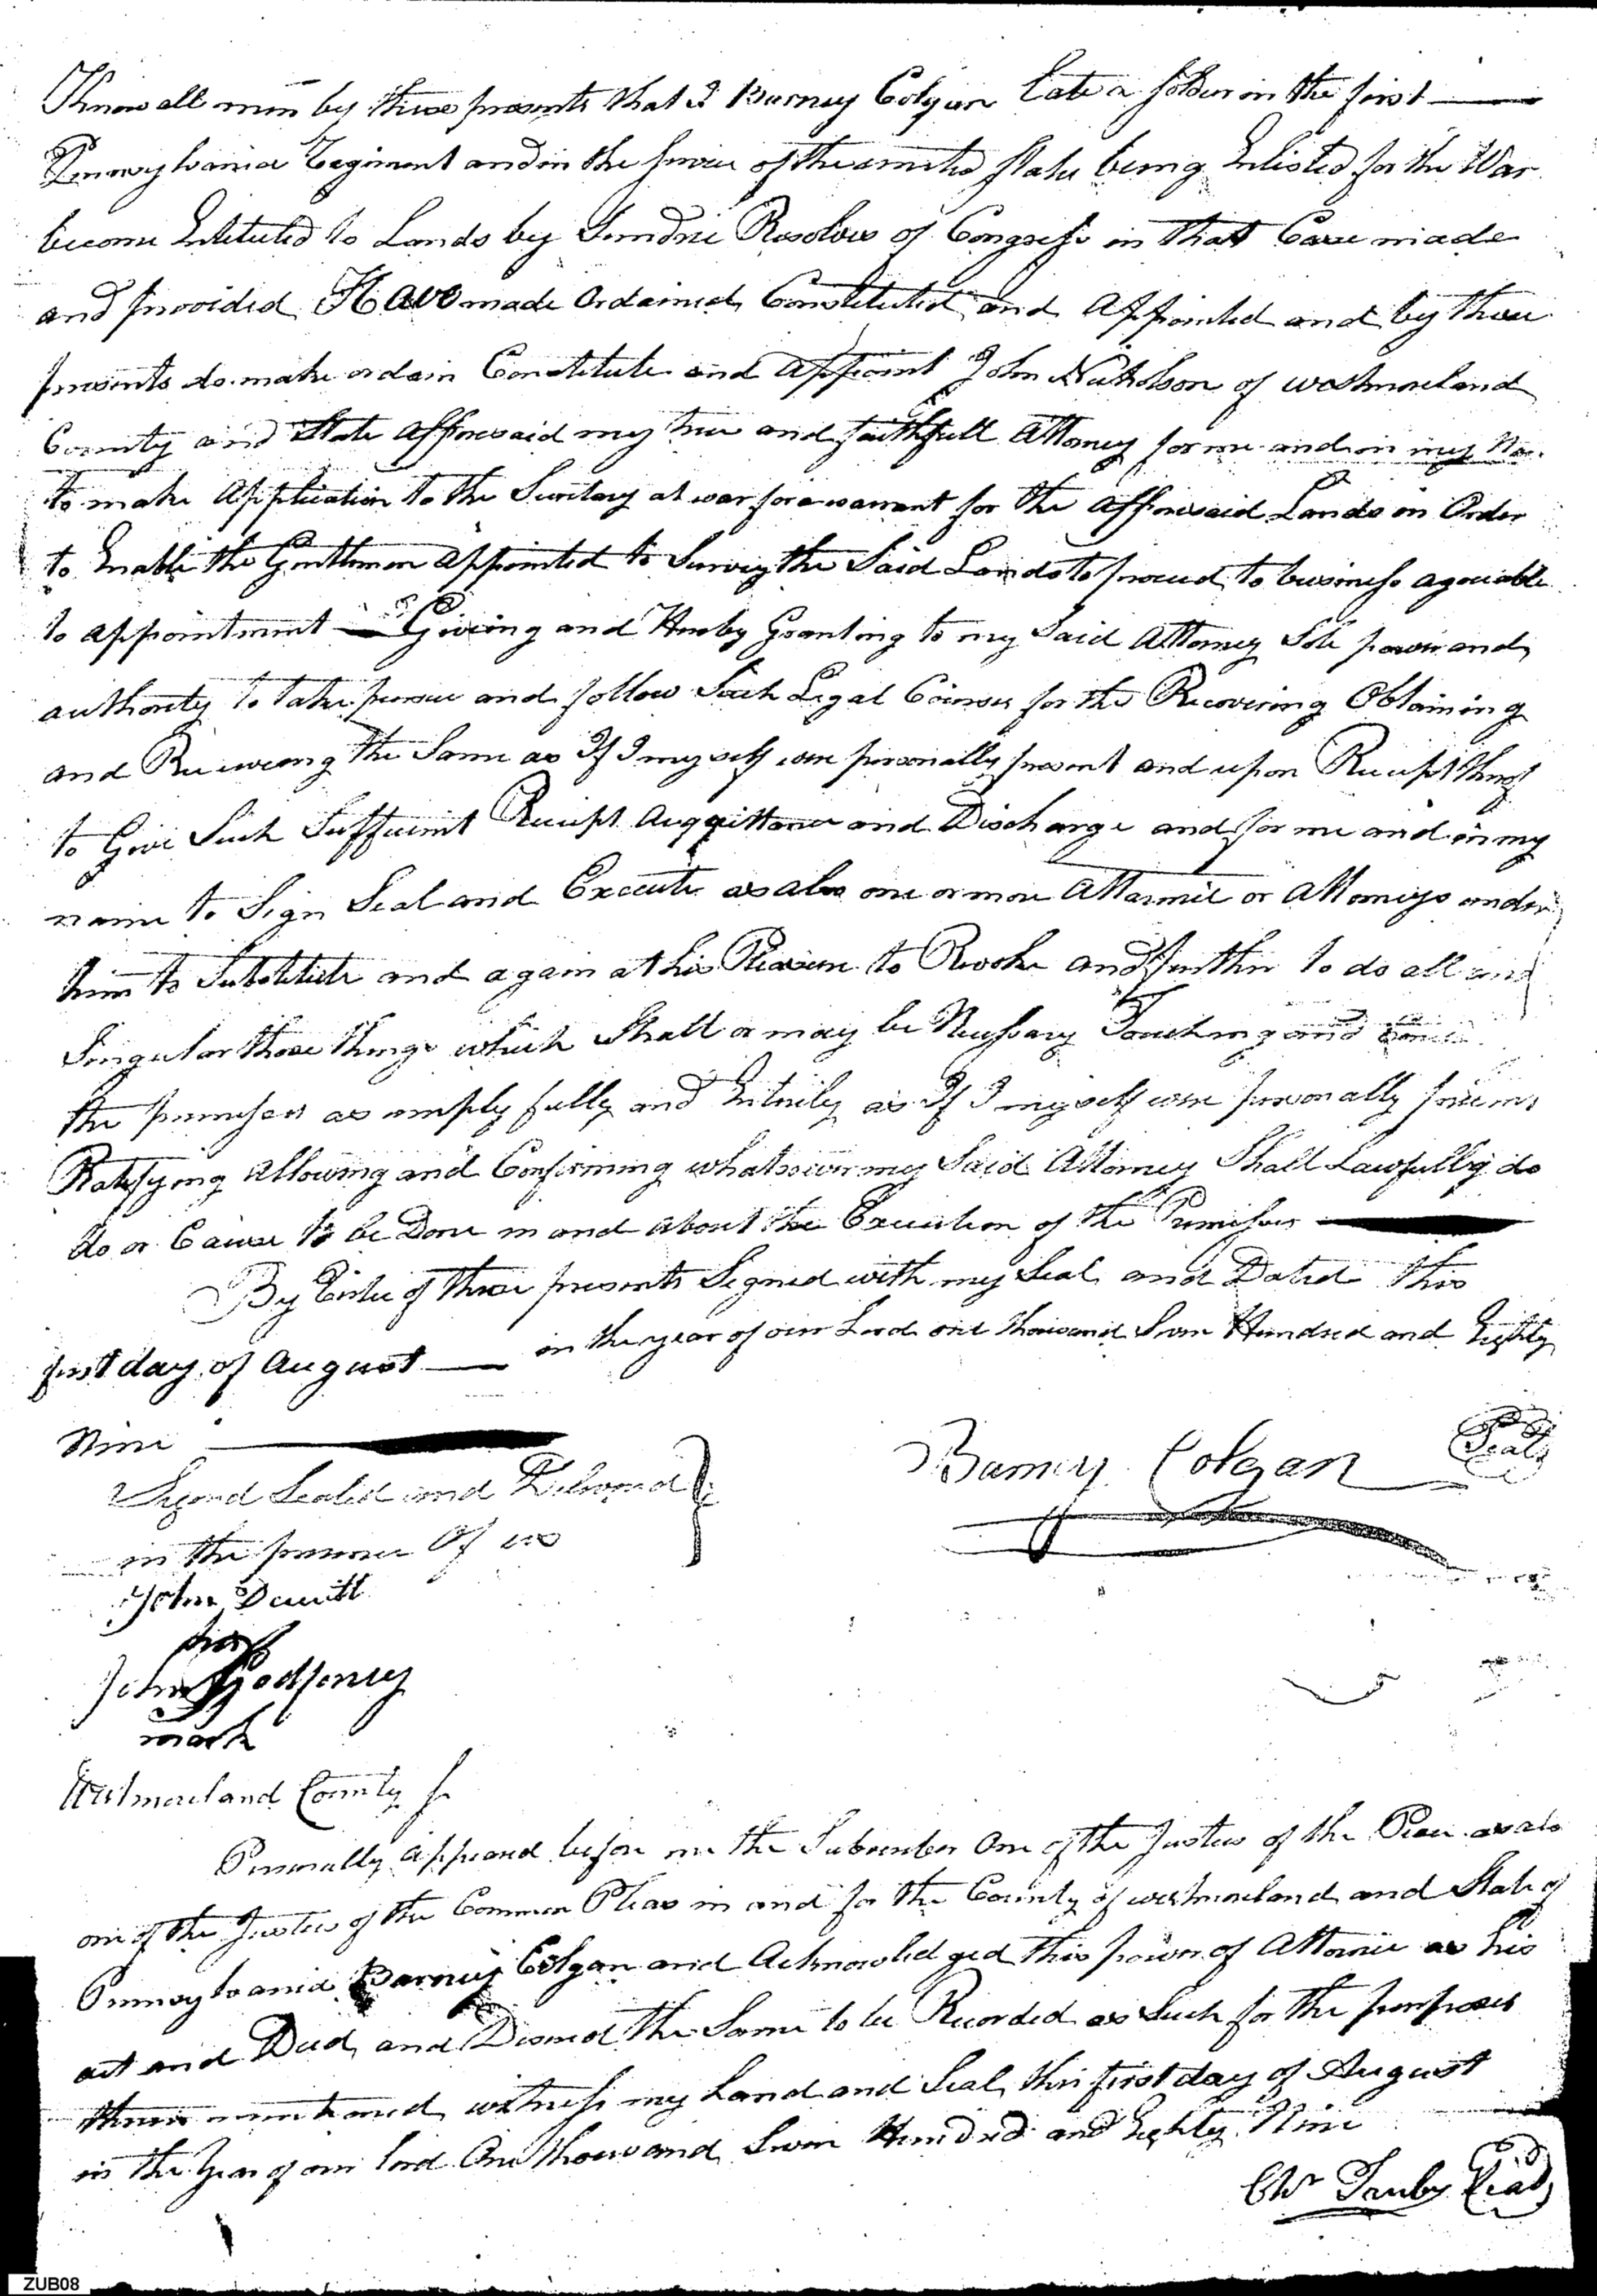 Know all men by these presents that I Barney Colgan Late a Solder in the first
Pennsylvania Regiment and in the Service of the united States being Inlisted for the War
become Intituled to Lands by Sundrie Resolves of Congress in that Case made
and provided Have made Ordained Constituted and Appointed and by these
presents do make ordain Constitute and Appoint John Nicholson of westmoreland
County and State afforesaid my true and faithfull Attorney for me and in my Na
to make Application to the Secritary at war for a warrant for the afforesaid Lands in Order
to Enable the Gentlemen Appointed to Survey the Said Lands to proceed to business agreeable
to appointment Giveing and Hereby Granting to my Said Attorney Sole power and
authority to take pursue and follow Such Legal Courses for the Recovering Obtaining
and Receiveing the Same as If I myself were personally present and upon Receipt thereof
to Give Such Suffecient Receipt Acqqittance and Discharge and for me and in my
name to Sign Seal and Execute as also one or more Attornie or Attorneys under
him to Substitute and again at his Pleasure to Revoke and further to do all and
Singular those things which Shall or may be Necessary Touching and
the premises as amply fully and Intirely as If I myself were personally present
Ratefying Allowing and Confirming whatsoever my Said Attorney Shall Lawfully do
do or Cause to be Done in and about the Execution of the Premises
By Virtue of these presents Signed with my Seal and Dated this
first day of August in the year of our Lord one thousand Seven Hundred and Eighty
Nine
Signed Sealed and Delivered
in the presence Of us
Barney Colgan Seal
John Dewitt
his
John Godfrey
mark
Westmoreland County Ss
Personally Appeared before me the Subscriber One of the Justices of the Peace as also
one of the Justices of the Common Pleas in and for the County of westmoreland and State of
Pennsylvania Barney Colgan and Acknowledged this power of Attornie as his
act and Deed and Desired the Same to be Recorded as Such for the purposes
therein mentioned witness my hand and Seal this first day of August
in the Year of our lord One thousand Seven Hundred and Eighty Nine
Chr Truby Seal
ZUB08